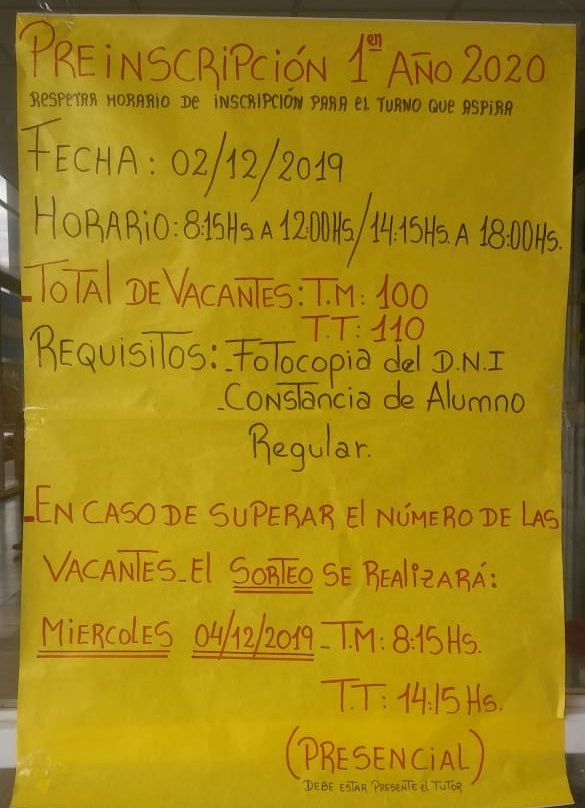 PREINSCRIPCIÓN 1en AÑO 2020
RESPETAR HORARIO DE INSCRIPCIÓN PARA EL TURNO QUE ASPIRA
FECHA: 02/12/2019
HORARIO: 8:15Hs A 12:00Hs/14:15Hs. A 18:00Hs.
-TOTAL DE VACANTES: T.M: 100
T.T: 110
REQUISITOS: -Fotocopia del D.N.I
-Constancia de Alumno
Regular.
-EN CASO DE SUPERAR El NÚMERO DE LAS
VACANTES-El SORTEO SE REALIZARÁ:
MIERCOLES 04/12/2019-T.M: 8:15Hs.
T.T: 14:15 Hs.
(PRESENCIAL)
DEBE ESTAR PRESENTE El TUTOR